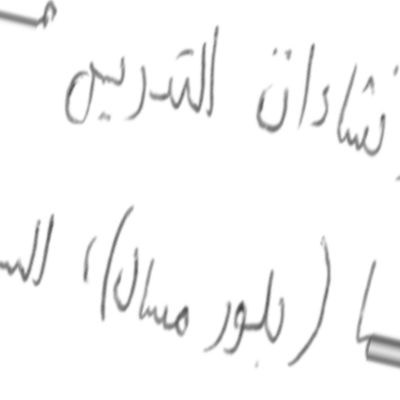 نشاءات التدريس
ا (بلور مسال)، الس